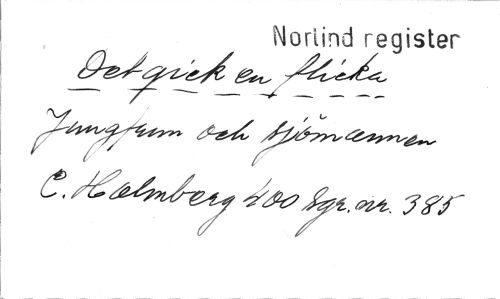 Norlind register
Det gick en flicka
Jungfrun och sjömannen
C. Holmberg 400 Sgr. nr. 385